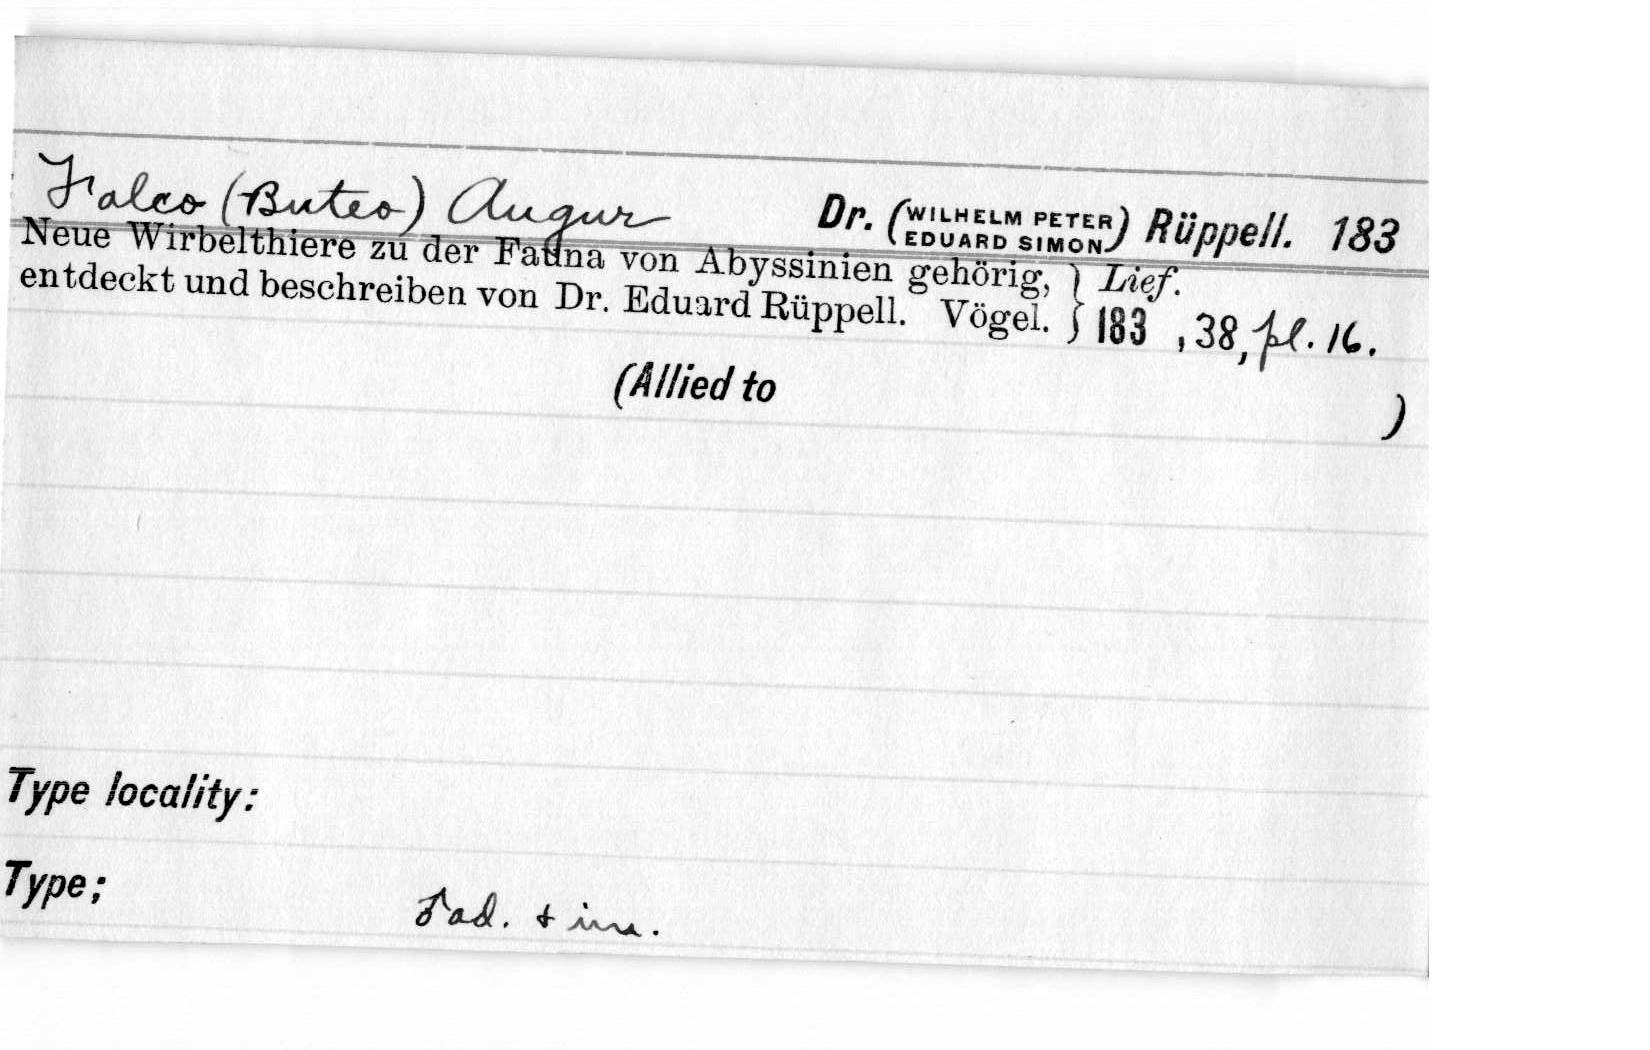 Falco (Buteo) Augur Dr. (WILHELM PETER EDUARD SIMON) Rüppell. 183
Neue Wirbelthiere zu der Fauna von Abyssinien gehörig, } Lief.
entdeckt und beschreiben von Dr. Eduard Rüppell. Vögel. } 183 , 38, pl. 16.
(Allied to )
Type locality:
Type; ♂ ad. + im.